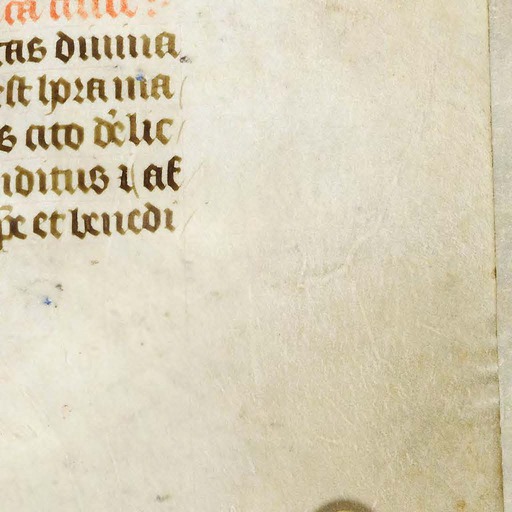 tas diuina
est lpra ma
s cito de lic
iditus ⁊ af
pe et benedi